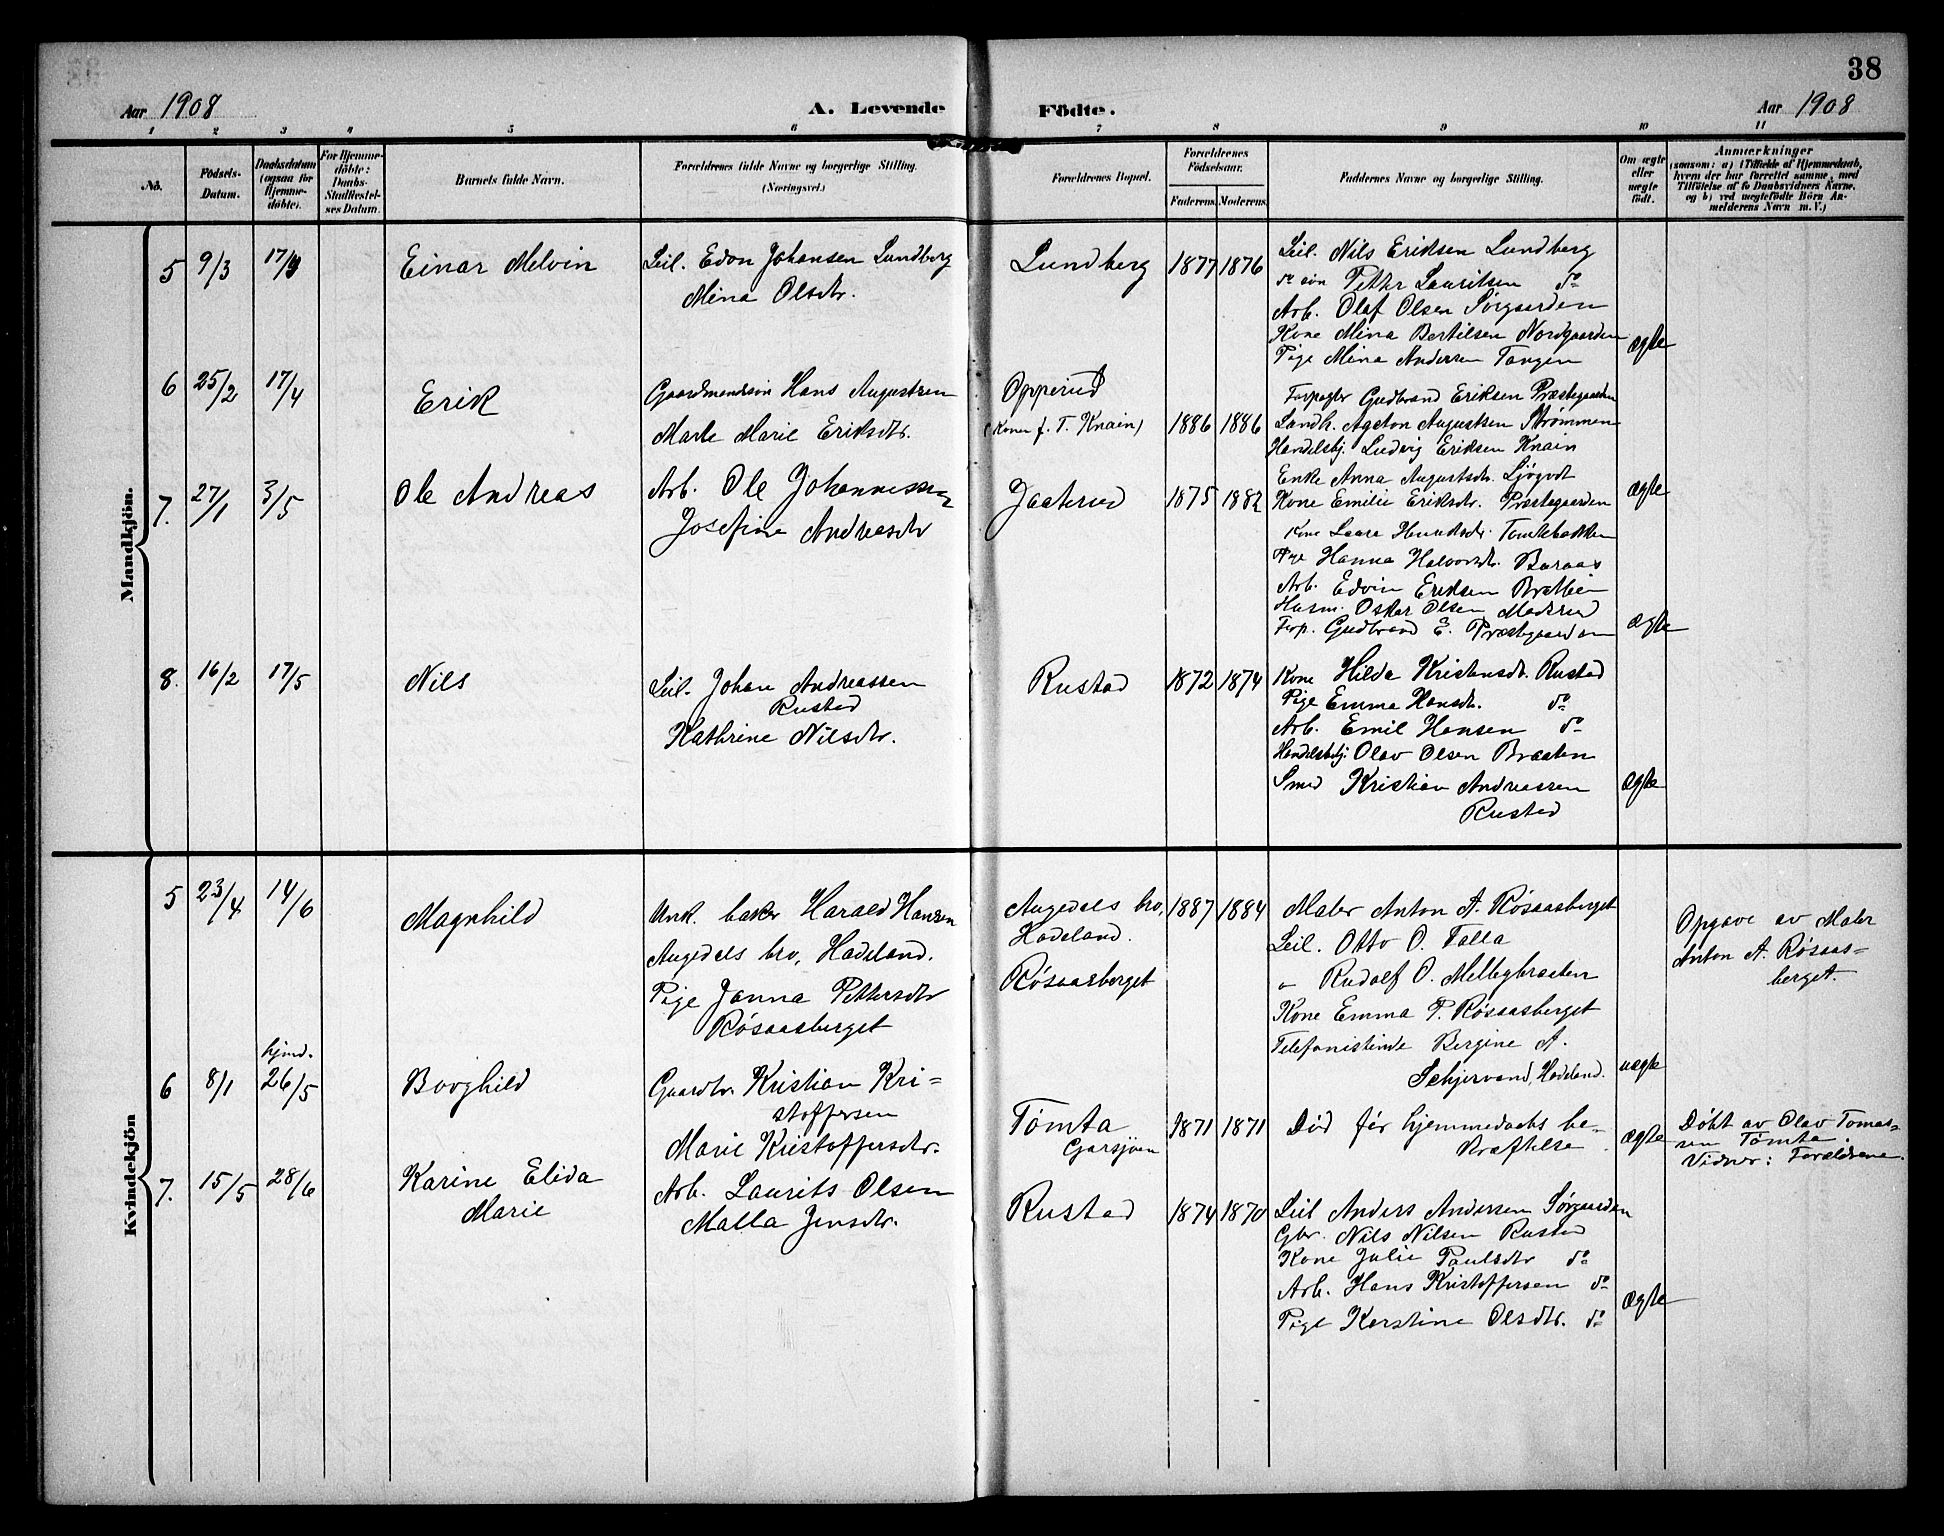 38
Aar 1908
A. Levende Födte.
Aar 1908
1 2 3 4 5 6 7 8 9 10 11
No.
Födsels-
Datum.
Daabsdatum
(ogsaa for
Hjemme-
döbte).
For Hjemme-
döbte:
Daabs-
Stadfæstel-
ses Datum.
Barnets fulde Navn.
Forældrenes fulde Navne og borgerlige Stilling.
(Næringsvei.)
Forældrenes Bopæl.
Forældrenes
Födselsaar.
Faderens. Moderens.
Faddernes Navne og borgerlige Stilling.
Om ægte
eller
uægte
födt.
Anmærkninger
(saasom: a) i Tilfælde af Hjemmedaab,
hvem der har forrettet samme, med
Tilföielse af to Daabsvidners Navne,
og b) ved uægtefödte Börn An-
melderens Navn m. V.)
Mandkjön.
5 9/3 17/4 Einar Melvin
Leil. Edon Johansen Lundberg
Mina Olsdtr.
Lundberg 1877 1876
Leil. Nils Eriksen Lundberg
do søn Petter Lauritsen do
Arb. Olaf Olsen Sørgaarden
Kone Mina Bertilsen Nordgaarden
Pige Mina Andersen Tangen
ægte
6 25/2 17/4 Erik
Gaardmandssøn Hans Augustsen
Marte Marie Eriksdtr.
Opperud
(Konen f. T. Knain) 1886 1886
Forpagter Gudbrand Eriksen Præstegaarden
Landh. Ageton Augustsen Strømmen
Handelsbj. Ludvig Eriksen Knain
Enke Anna Augustsdtr. Sjøgvdt
Kone Emilie Eriksdtr. Præstegaarden
ægte
7. 27/1 3/5 Ole Andreas
Arb. Ole Johannessen
Josefine Andreasdtr
Jaaterud 1875 1882
Kone Laura Tomtebakken
Pige Hanna Halvorsdtr. Buraas
Arb. Edvin Eriksen Bratlien
Husm. Oskar Olsen Madserud
Forp. Gudbrand E. Præstegaarden
ægte
8. 16/2 17/5 Nils
Leil. Johan Andreassen
Rustad
Kathrine Nilsdtr.
Rustad 1872 1874
Kone Hilda Kristensdtr. Rustad
Pige Emma Hansdtr. do
Arb. Emil Hansen do
Handelsbetj. Olav Olsen Braaten
Smed Kristian Andreassen
Rustad
ægte
Kvindekjön
5 23/4 14/6 Magnhild
Unk. baker Harald Hansen
Augedals bro, Hadeland.
Pige Janna Pettersdtr
Røsaasberget
Augedals bro,
Hadeland.
Røsaasberget
1887 1884
Maler Anton A. Røsaasberget
Leil. Otto O. Falla
" Rudolf O. Mellegbraaten
Kone Emma P. Røsaasberget
Telefonistinde Bergine A.
Schjervand, Hadeland.
uægte
Opgave av Maler
Anton A. Røsaas-
berget.
6 8/1 hjmd. 26/5 Borghild
Gaardbr. Kristian Kri-
stoffersen
Marie Kristoffersdtr.
Tømta
Garsjøen
1871 1871
Død før hjemmedaabs be-
kræftelse
ægte
Døbt av Olav Tomas-
sen Tømta.
Vidner: Forældrene.
7. 15/5 28/6 Karine Elida
Marie
Arb. Laurits Olsen
Malla Jensdtr.
Rustad 1874 1870
Leil Anders Andersen Sørgaarden
Gbr. Nils Nilsen Rustad
Kone Julie Paulsdtr do
Arb. Hans Kristoffersen do
Pige Karstine Olsdtr. do
ægte